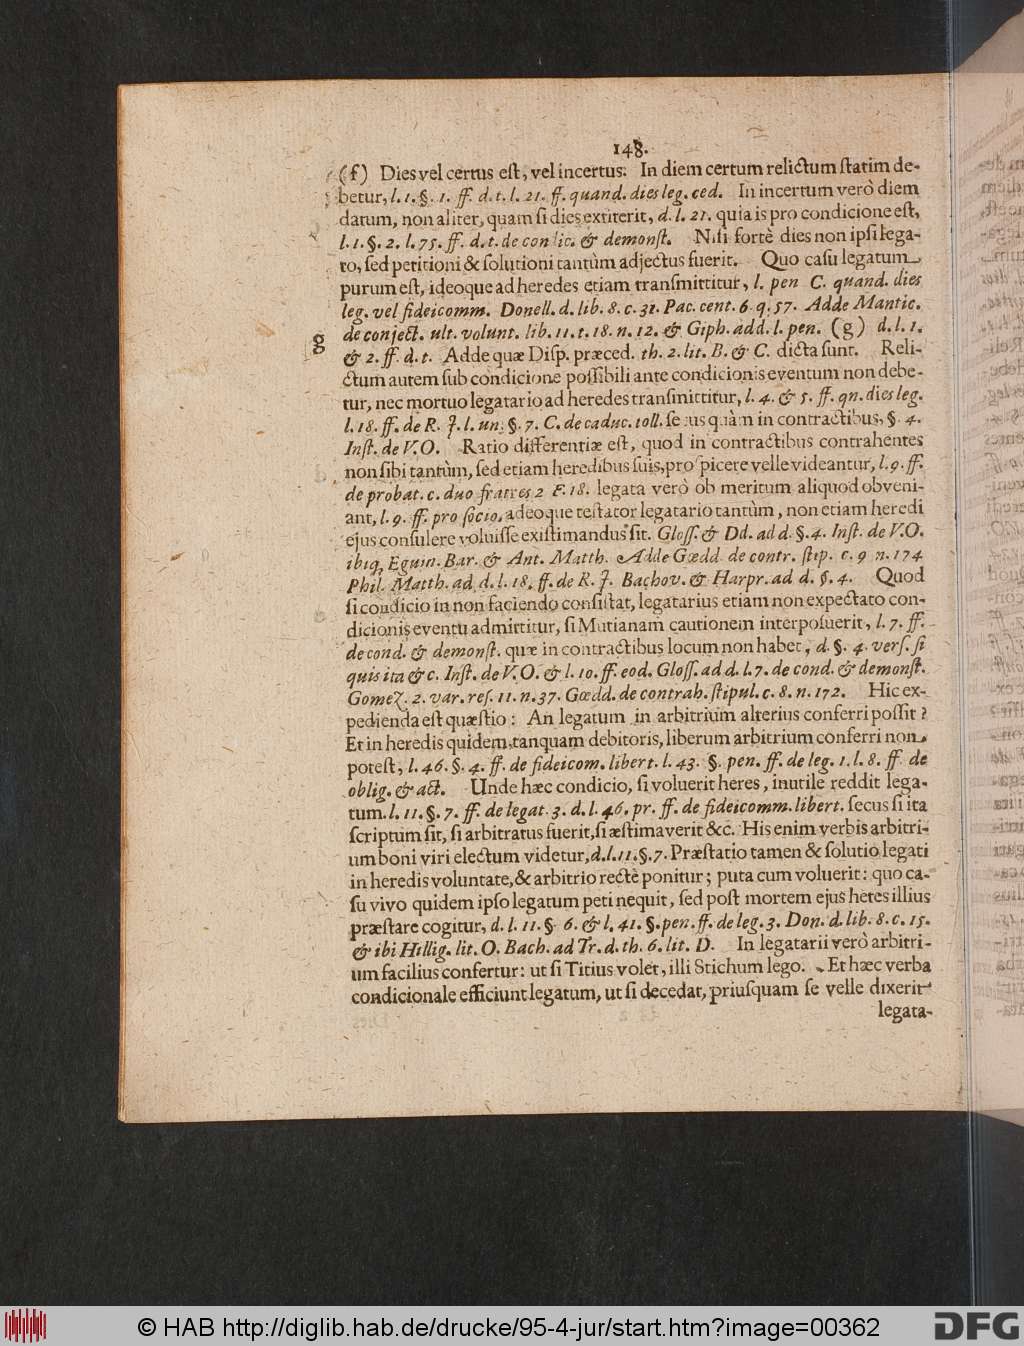 148.
(f) Dies vel certus eſt, vel incertus: In diem certum relictum ſtatim de-
betur, l. 1. §. 1. ff. d. t. l. 21. ff. quand. dies leg. ced. In incertum verò diem
datum, non aliter, quam ſi dies extiterit, d. l. 21. quia is pro condicione eſt,
l. 1. §. 2. l. 75. ff. d. t. de condic. & demonſt. Niſi fortè dies non ipſi lega-
to, ſed petitioni & ſolutioni tantùm adjectus fuerit. Quo caſu legatum
purum eſt, ideoque ad heredes etiam tranſmittitur, l. pen C. quand. dies
leg. vel fideicomm. Donell. d. lib. 8. c. 31. Pac. cent. 6. q. 57. Adde Mantic.
g de conject. ult. volunt. lib. 11. t. 18. n. 12. & Giph. add. l. pen. (g) d. l. 1.
& 2. ff. d. t. Adde quæ Diſp. præced. th. 2. lit. B. & C. dicta ſunt. Reli-
ctum autem ſub condicione poſſibili ante condicionis eventum non debe-
tur, nec mortuo legatario ad heredes tranſmittitur, l. 4. & 5. ff. qn. dies leg.
l. 18. ff. de R. J. l. un. §. 7. C. de caduc. toll. ſecus quàm in contractibus, §. 4.
Inſt. de V. O. Ratio differentiæ eſt, quod in contractibus contrahentes
non ſibi tantùm, ſed etiam heredibus ſuis, proſpicere velle videantur, l. 9. ff.
de probat. c. duo fratres 2 F. 18. legata verò ob meritum aliquod obveni-
ant, l. 9. ff. pro ſocio, adeoque teſtator legatario tantùm, non etiam heredi
ejus conſulere voluiſſe exiſtimandus ſit. Gloſſ. & Dd. ad d. §. 4. Inſt. de V. O.
ibiq, Eguin. Bar. & Ant. Matth. Adde Gœdd. de contr. ſtip. c. 9 n. 174
Phil. Matth. ad d. l. 18. ff. de R. J. Bachov. & Harpr. ad d. §. 4. Quod
ſi condicio in non faciendo conſiſtat, legatarius etiam non expectato con-
dicionis eventu admittitur, ſi Mutianam cautionem interpoſuerit, l. 7. ff.
de cond. & demonſt. quæ in contractibus locum non habet, d. §. 4. verſ. ſi
quis ita & c. Inſt. de V. O. & l. 10. ff. eod. Gloſſ. ad d. l. 7. de cond. & demonſt.
Gomez. 2. var. reſ. 11. n. 37. Gœdd. de contrah. ſtipul. c. 8. n. 172. Hic ex-
pedienda eſt quæſtio: An legatum in arbitrium alterius conferri poſſit?
Et in heredis quidem, tanquam debitoris, liberum arbitrium conferri non
poteſt, l. 46. §. 4. ff. de fideicom. libert. l. 43. §. pen. ff. de leg. 1. l. 8. ff. de
oblig. & act. Unde hæc condicio, ſi voluerit heres, inutile reddit lega-
tum. l. 11. §. 7. ff. de legat. 3. d. l. 46. pr. ff. de fideicomm. libert. ſecus ſi ita
ſcriptum ſit, ſi arbitratus fuerit, ſi æſtimaverit &c. His enim verbis arbitri-
um boni viri electum videtur, d. l. 11. §. 7. Præſtatio tamen & ſolutio legati
in heredis voluntate, & arbitrio rectè ponitur; puta cum voluerit: quo ca-
ſu vivo quidem ipſo legatum peti nequit, ſed poſt mortem ejus heres illius
præſtare cogitur, d. l. 11. §. 6. & l. 41. §. pen. ff. de leg. 3. Don. d. lib. 8. c. 15.
& ibi Hillig. lit. O. Bach. ad Tr. d. th. 6. lit. D. In legatarii verò arbitri-
um facilius confertur: ut ſi Titius volet, illi Stichum lego. Et hæc verba
condicionale efficiunt legatum, ut ſi decedat, priuſquam ſe velle dixerit
legata-
© HAB http://diglib.hab.de/drucke/95-4-jur/start.htm?image=00362
DFG